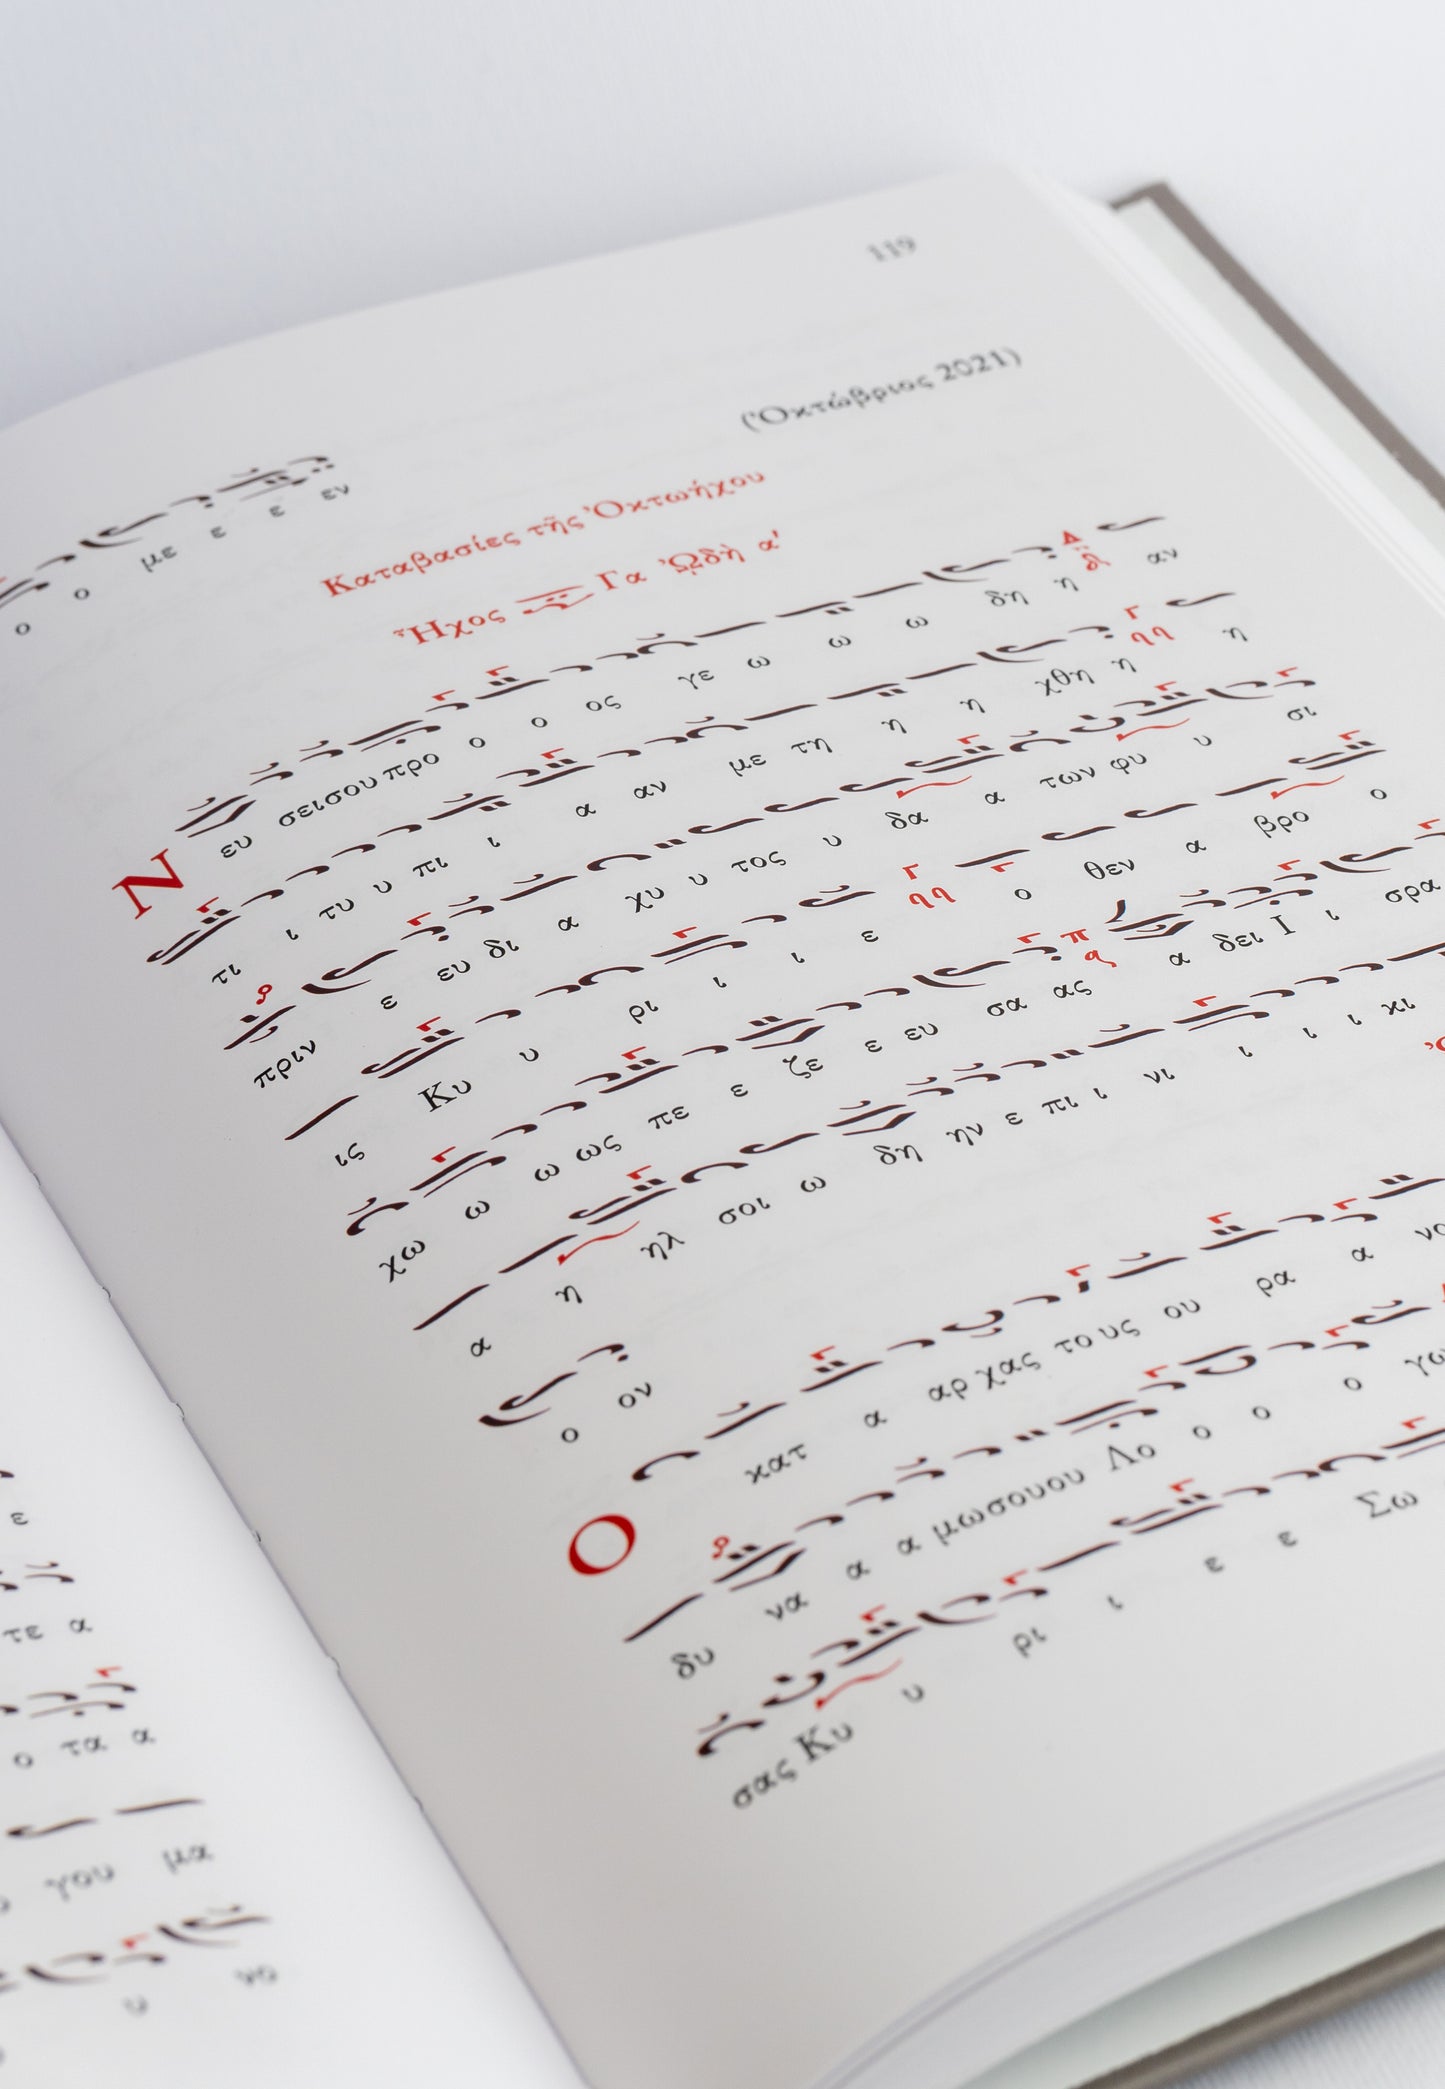 119
(Ὀκτώβριος 2021)
Καταβασίες τῆς Ὀκτωήχου
Ἦχος Γα ᾨδὴ α'
ο ο με ε ε εν
Ν ευ σεισου προ ο ο ος γε ω ω ω δη η αν
τι ι τυ υ πι ι α αν με τη η η χθη η η
πριν ε ευ δι α χυ υ τος υ δα α των φυ υ σι
ις Κυ υ ρι ι ι ε ο θεν α βρο ο
χω ω ω ως πε ε ζε ε ευ σα ας α δει Ι ι σρα
α η ηλ σοι ω δη ην ε πι ι νι ι ι ι κι
ο ον
Ο κατ α αρ χας το υς ου ρα α
δυ να α α μωσουου Λο ο ο ο
σας Κυ υ ρι ι ε ε Σω
ε
τε α
ο τα α
γου μα